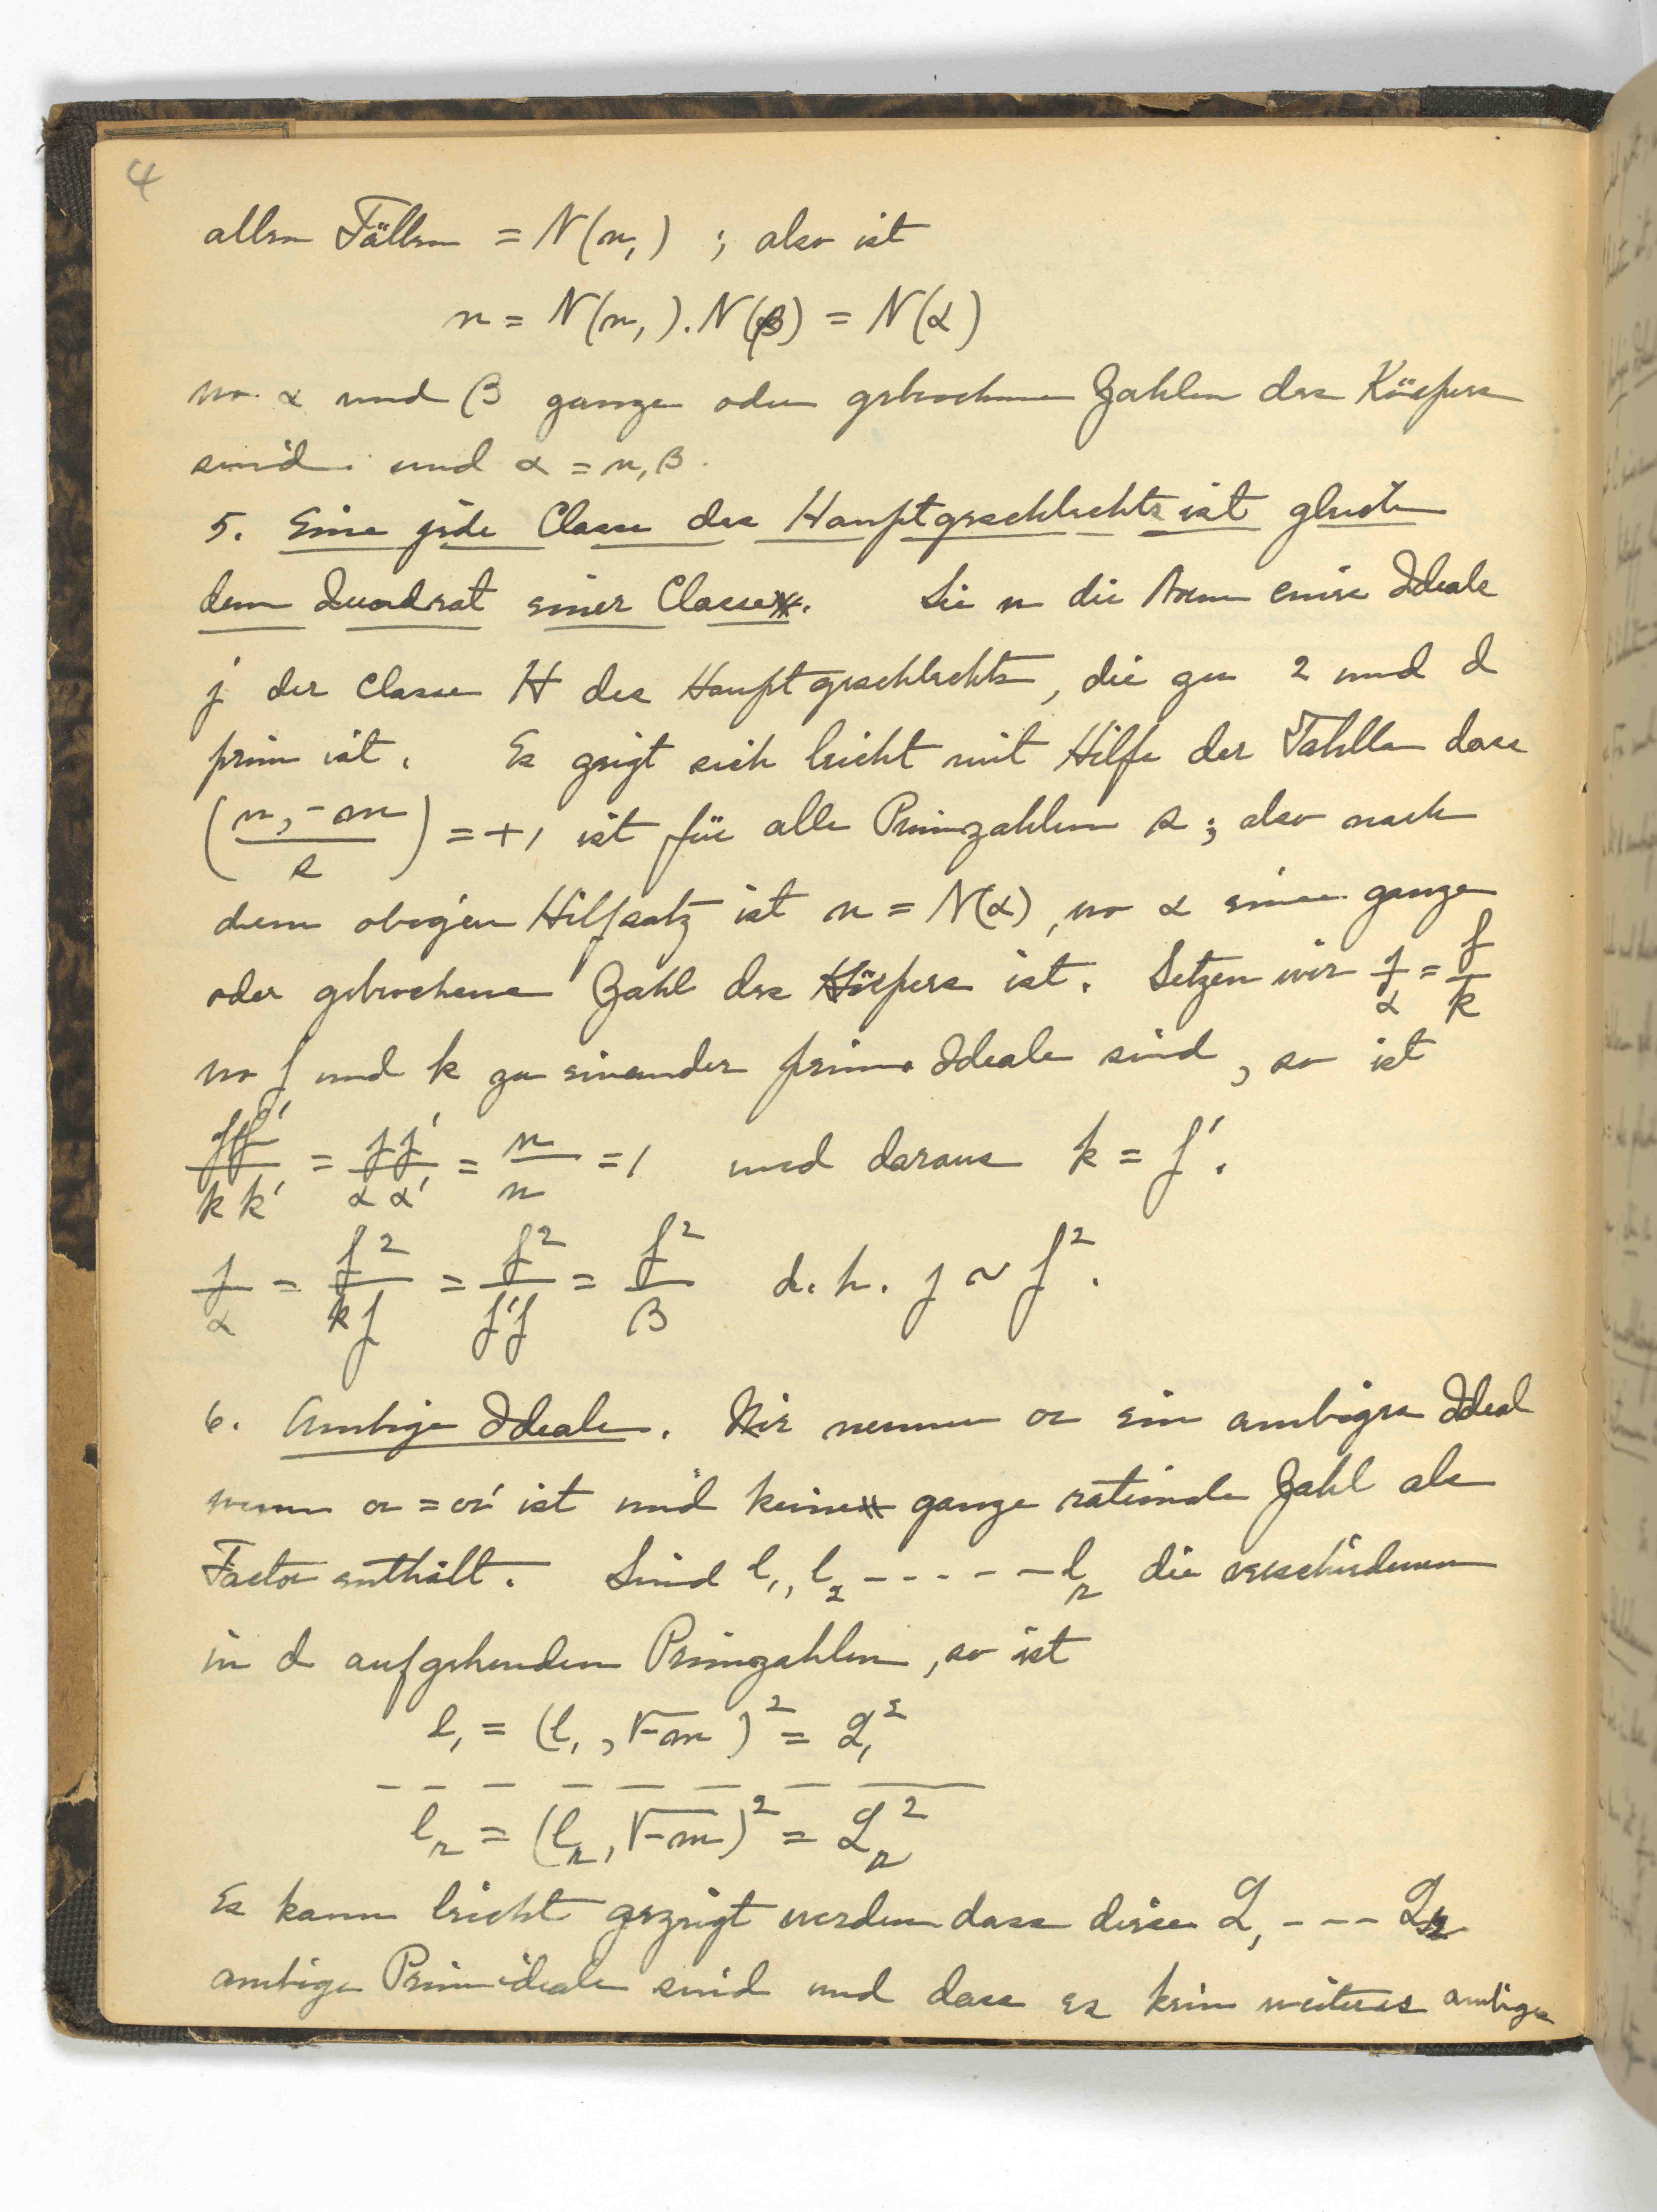 4
allen Fällen = N(n,) ; also ist
n = N(n,).N(β) = N(α)
wo α und β ganze oder gebrochene Zahlen des Körpers
sind. und α = n,β.
5. Eine jede Classe des Hauptgeschlechts ist gleich
dem Quadrat einer Classe. Sei n die Norm eines Ideals
j der Classe H des Hauptgeschlechts, die zu 2 und d
prim ist. Es zeigt sich leicht mit Hilfe der Tabellen dass
(n, -m / s) = +1 ist für alle Primzahlen s; also nach
dem obigen Hilfsatz ist n = N(α), wo α eine ganze
oder gebrochene Zahl des Körpers ist. Setzen wir j/α = f/k
wo f und k zu einander prime Ideale sind, so ist
ff'/kk' = jj'/αα' = n/n = 1 und daraus k = f'.
j/α = f²/kf = f²/f'f = f²/β d.h. j ~ f².
6. Ambige Ideale. Wir nennen a ein ambiges Ideal
wenn a = a' ist und keine ganze rationale Zahl als
Factor enthält. Sind l₁, l₂ - - - - - lᵣ die verschiedenen
in d aufgehenden Primzahlen, so ist
l₁ = (l₁, √-m)² = L₁²
lᵣ = (lᵣ, √-m)² = Lᵣ²
Es kann leicht gezeigt werden dass diese L₁ - - - Lᵣ
ambige Primideale sind und dass es kein weiteres ambiges